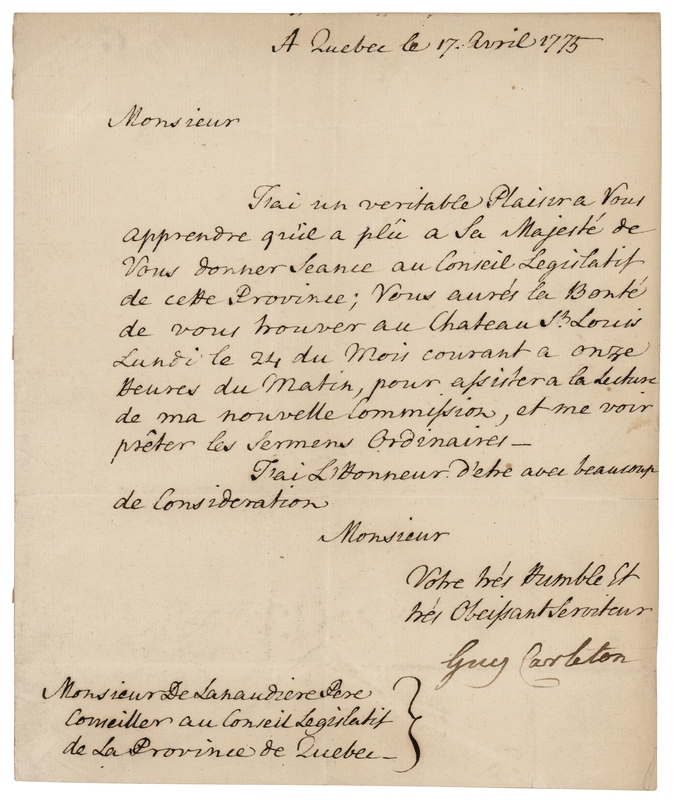 A Quebec le 17. Avril 1775
Monsieur
J'ai un veritable Plaisir a Vous
apprendre qu'il a plû a Sa Majesté de
Vous donner Seance au Conseil Legislatif
de cette Province; Vous aurés la Bonté
de vous trouver au Chateau St. Louis
Lundi le 24 du Mois courant a onze
Heures du Matin, pour assister a la Lecture
de ma nouvelle Commission, et me voir
prêter les Sermens Ordinaires —
J'ai L'Honneur d'etre avec beaucoup
de Consideration
Monsieur
Votre trés Humble Et
trés Obeissant Serviteur
Guy Carleton
Monsieur De Lanaudiere Pere
Conseiller au Conseil Legislatif
de La Province de Quebec —